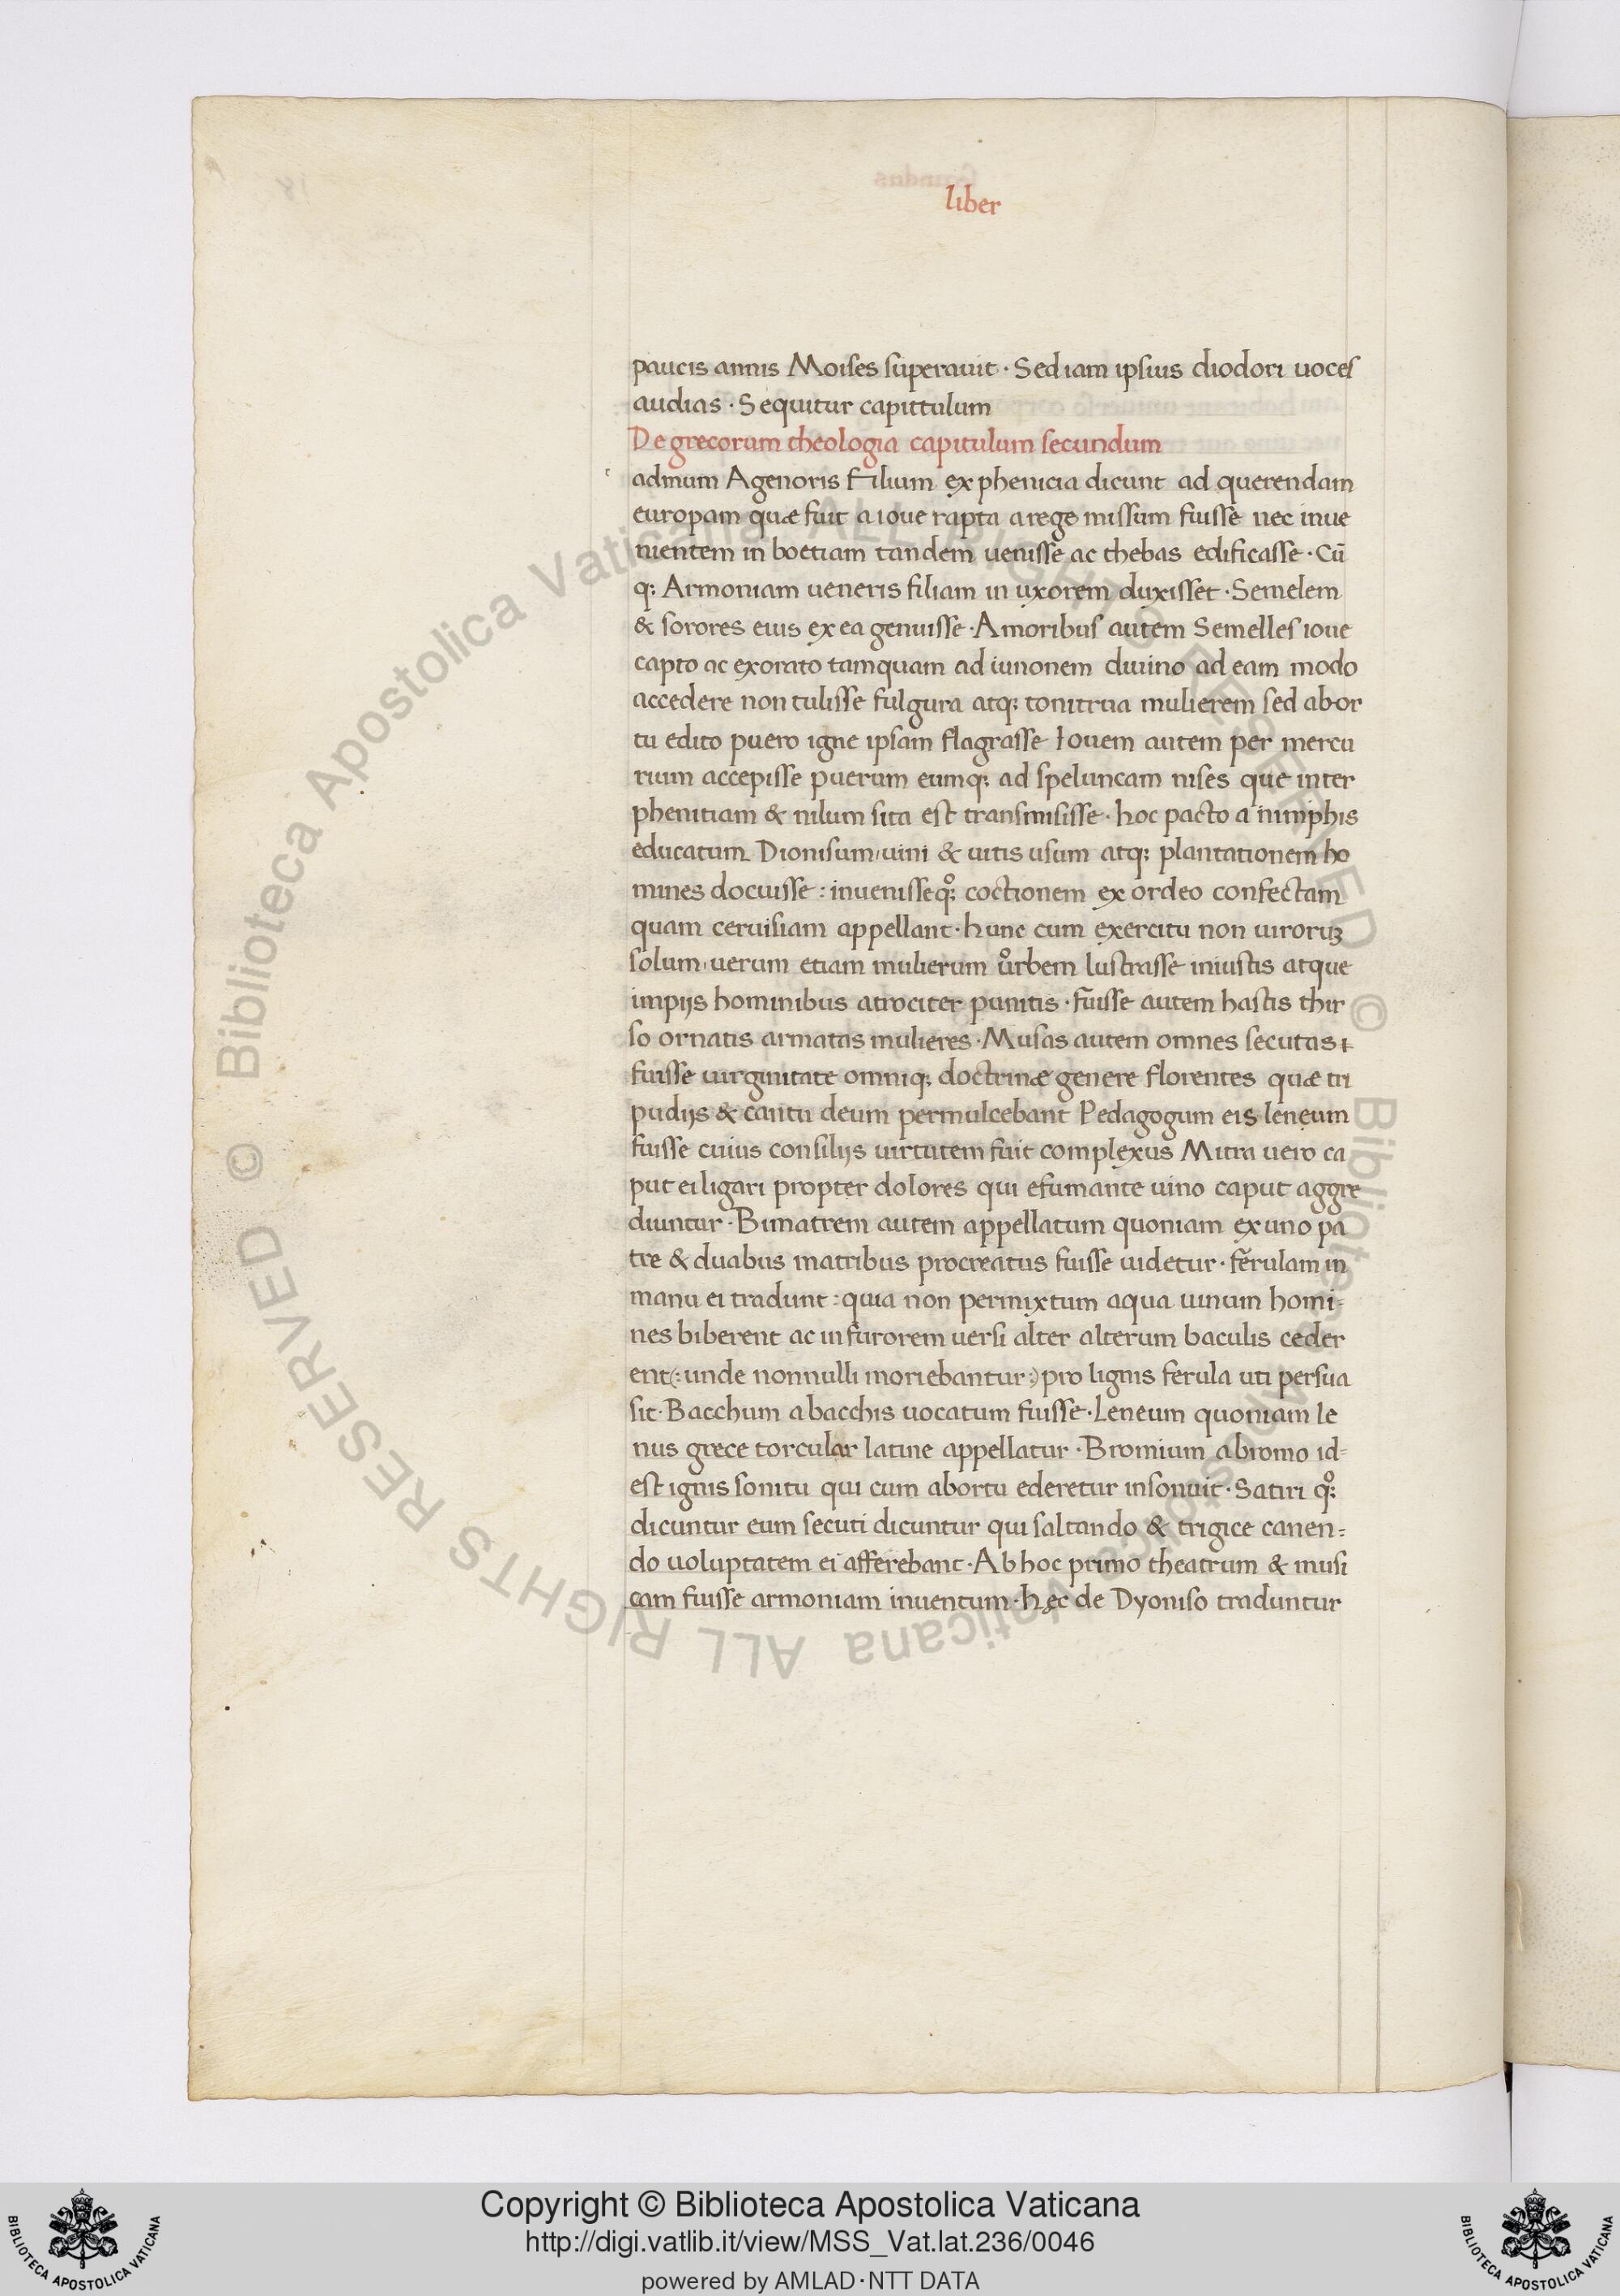 liber
paucis annis Moises superauit · Sed iam ipsius diodori uoces
audias · Sequitur capittulum
De grecorum theologia capitulum secundum
c
admum Agenoris Filium ex phenicia dicunt ad querendam
europam quæ fuit a ioue rapta a rege missum fuisse nec inue
nientem in boetiam tandem uenisse ac thebas edificasse · Cū
q; Armoniam ueneris filiam in uxorem duxisset · Semelem
& sorores eius ex ea genuisse · Amoribus autem Semelles ioue
capto ac exorato tamquam ad iunonem diuino ad eam modo
accedere non tulisse fulgura atq; tonitrua mulierem sed abor
tu edito puero igne ipsam flagrasse Iouem autem per mercu
rium accepisse puerum eumq; ad speluncam nises que inter
phenitiam & nilum sita est transmisisse · hoc pacto a nimphis
educatum Dionisum uini & uitis usum atq; plantationem ho
mines docuisse : inuenisseq; coctionem ex ordeo confectam
quam ceruisiam appellant · hunc cum exercitu non uiroruꝫ
solum uerum etiam mulierum urbem lustrasse iniustis atque
impijs hominibus atrociter punitis · fuisse autem hastis thir
so ornatis armatas mulieres · Musas autem omnes secutas
fuisse uirginitate omniq; doctrinæ genere florentes quæ tri
pudijs & cantu deum permulcebant Pedagogum eis leneum
fuisse cuius consilijs uirtutem fuit complexus Mitra uero ca
put ei ligari propter dolores qui efumante uino caput aggre
diuntur · Bimatrem autem appellatum quoniam ex uno pa
tre & duabus matribus procreatus fuisse uidetur · ferulam in
manu ei tradunt : quia non permixtum aqua uinum homi=
nes biberent ac in furorem uersi alter alterum baculis ceder
ent (: unde nonnulli moriebantur :) pro lignis ferula uti persua
sit · Bacchum a bacchis uocatum fuisse · Leneum quoniam le
nus grece torcular latine appellatur · Bromium a bromo id=
est ignis sonitu qui cum abortu ederetur insonuit · Satiri q;
dicuntur eum secuti dicuntur qui saltando & trigice canen=
do uoluptatem ei afferebant · Ab hoc primo theatrum & musi
cam fuisse armoniam inuentum · hęc de Dyoniso traduntur
Copyright © Biblioteca Apostolica Vaticana
http://digi.vatlib.it/view/MSS_Vat.lat.236/0046
powered by AMLAD·NTT DATA
BIBLIOTECA APOSTOLICA VATICANA
BIBLIOTECA APOSTOLICA VATICANA
© Biblioteca Apostolica Vaticana ALL RIGHTS RESERVED © Biblioteca Apostolica Vaticana ALL RIGHTS RESERVED